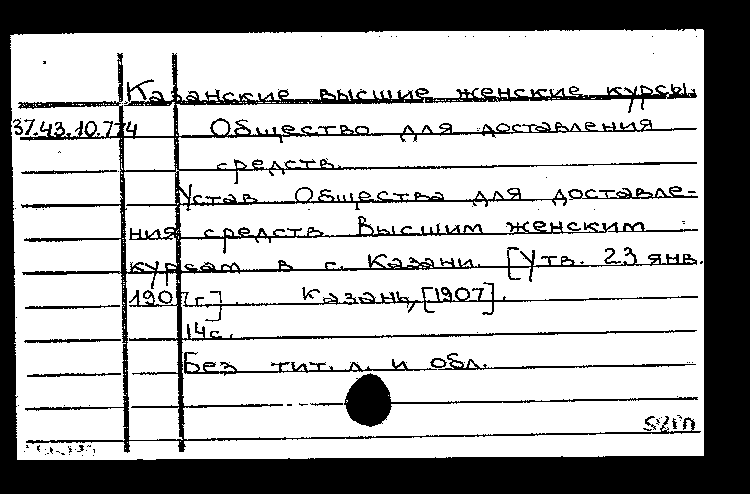 Казанские высшие женские курсы.
37.43.10.774 Общество для доставления
средств.
Устав Общества для доставле-
ния средств Высшим женским
курсам в г. Казани. [Утв. 23 янв.
1907 г.]. Казань, [1907].
14с.
Без тит. л. и обл.